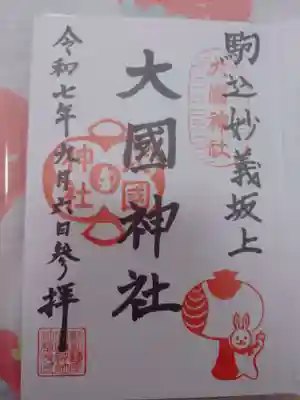 駒込妙義坂上
大國神社
大國神社
令和七年九月六日參拝